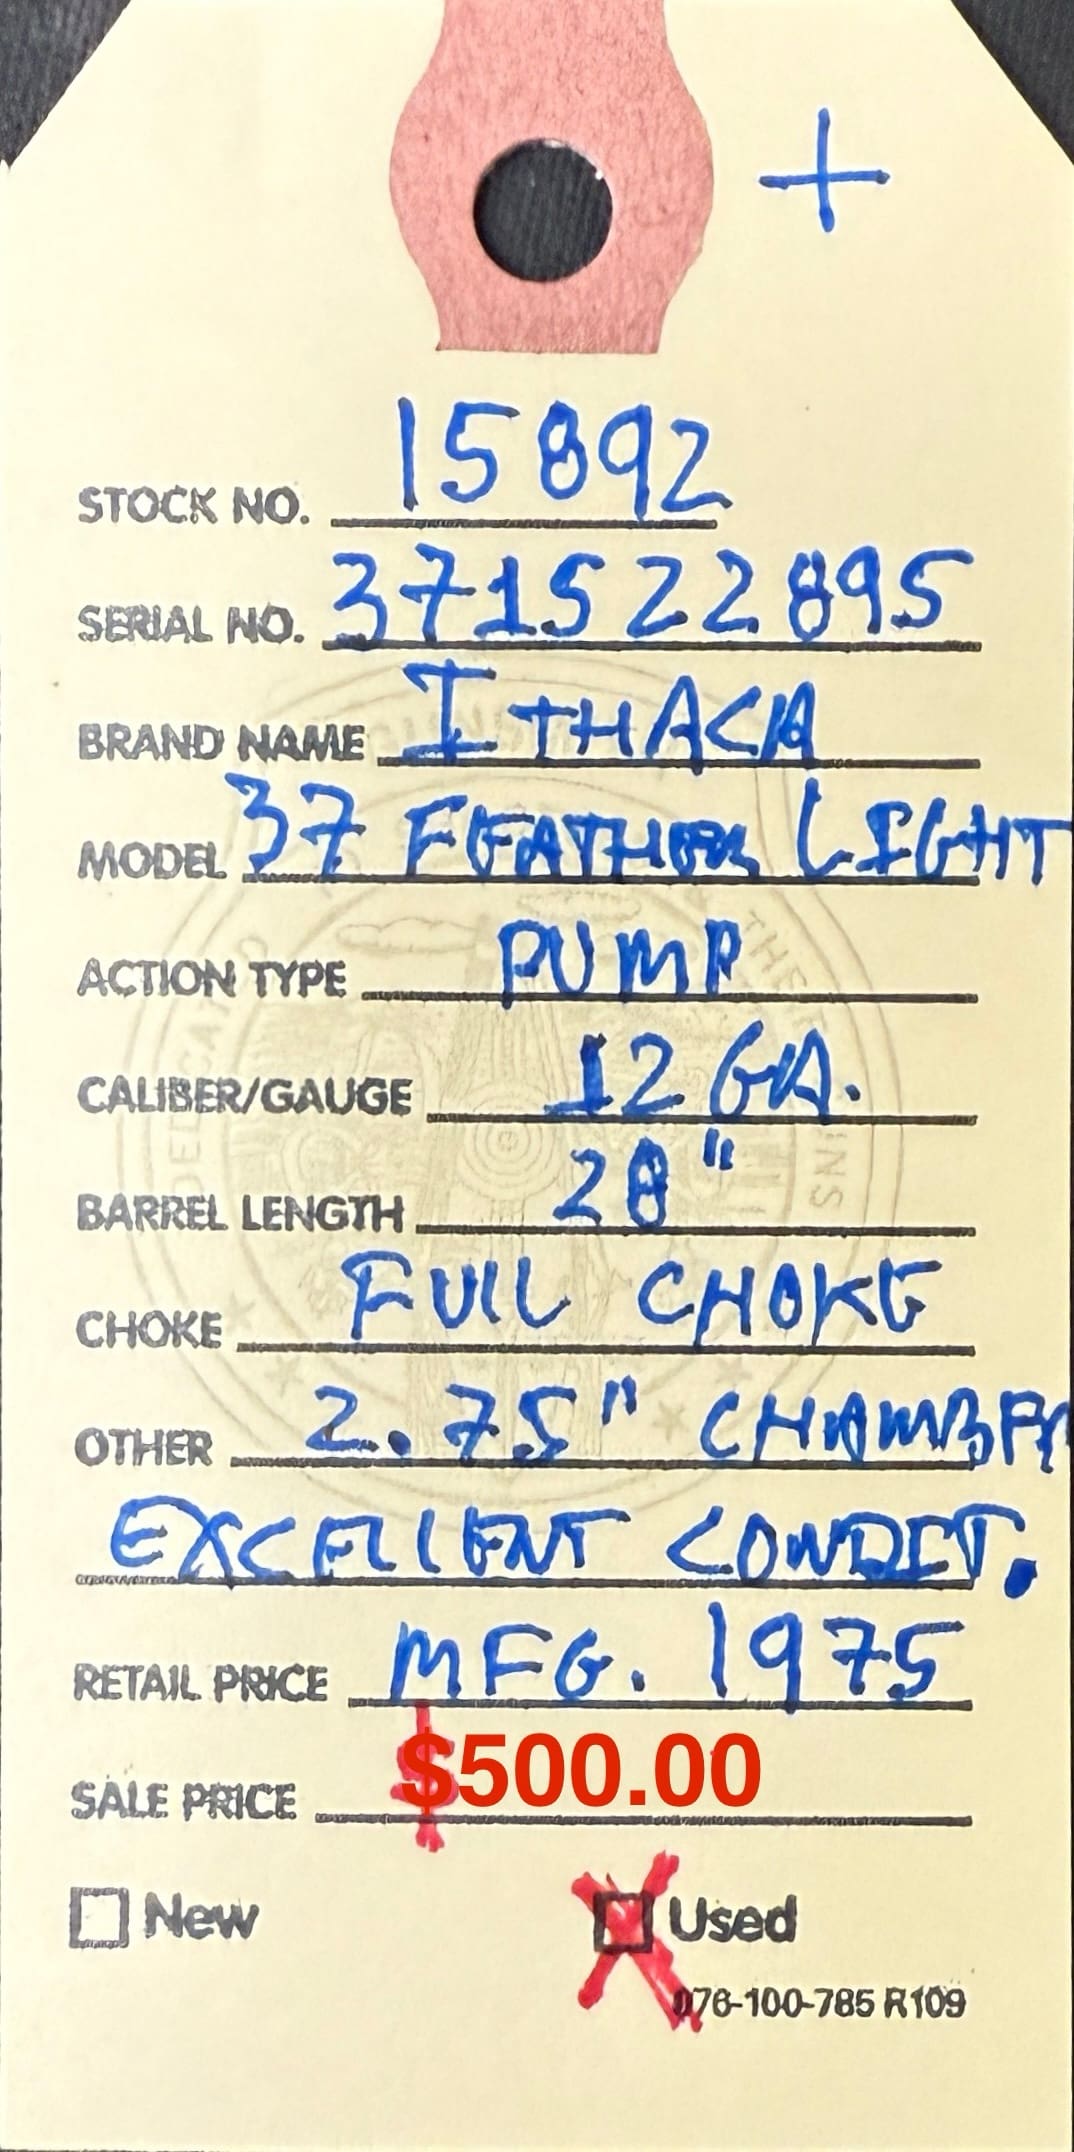 +
STOCK NO. 15892
SERIAL NO. 371522895
BRAND NAME ITHACA
MODEL 37 FEATHER LIGHT
ACTION TYPE PUMP
CALIBER/GAUGE 12 GA.
BARREL LENGTH 28"
CHOKE FULL CHOKE
OTHER 2.75" CHAMBER
EXCELLENT CONDIT.
RETAIL PRICE MFG. 1975
SALE PRICE $500.00
New Used
076-100-785 R109